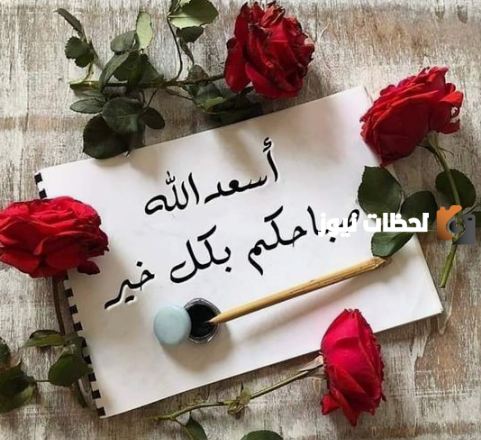 أسعد الله
صباحكم بكل خير
لحظات نيوز